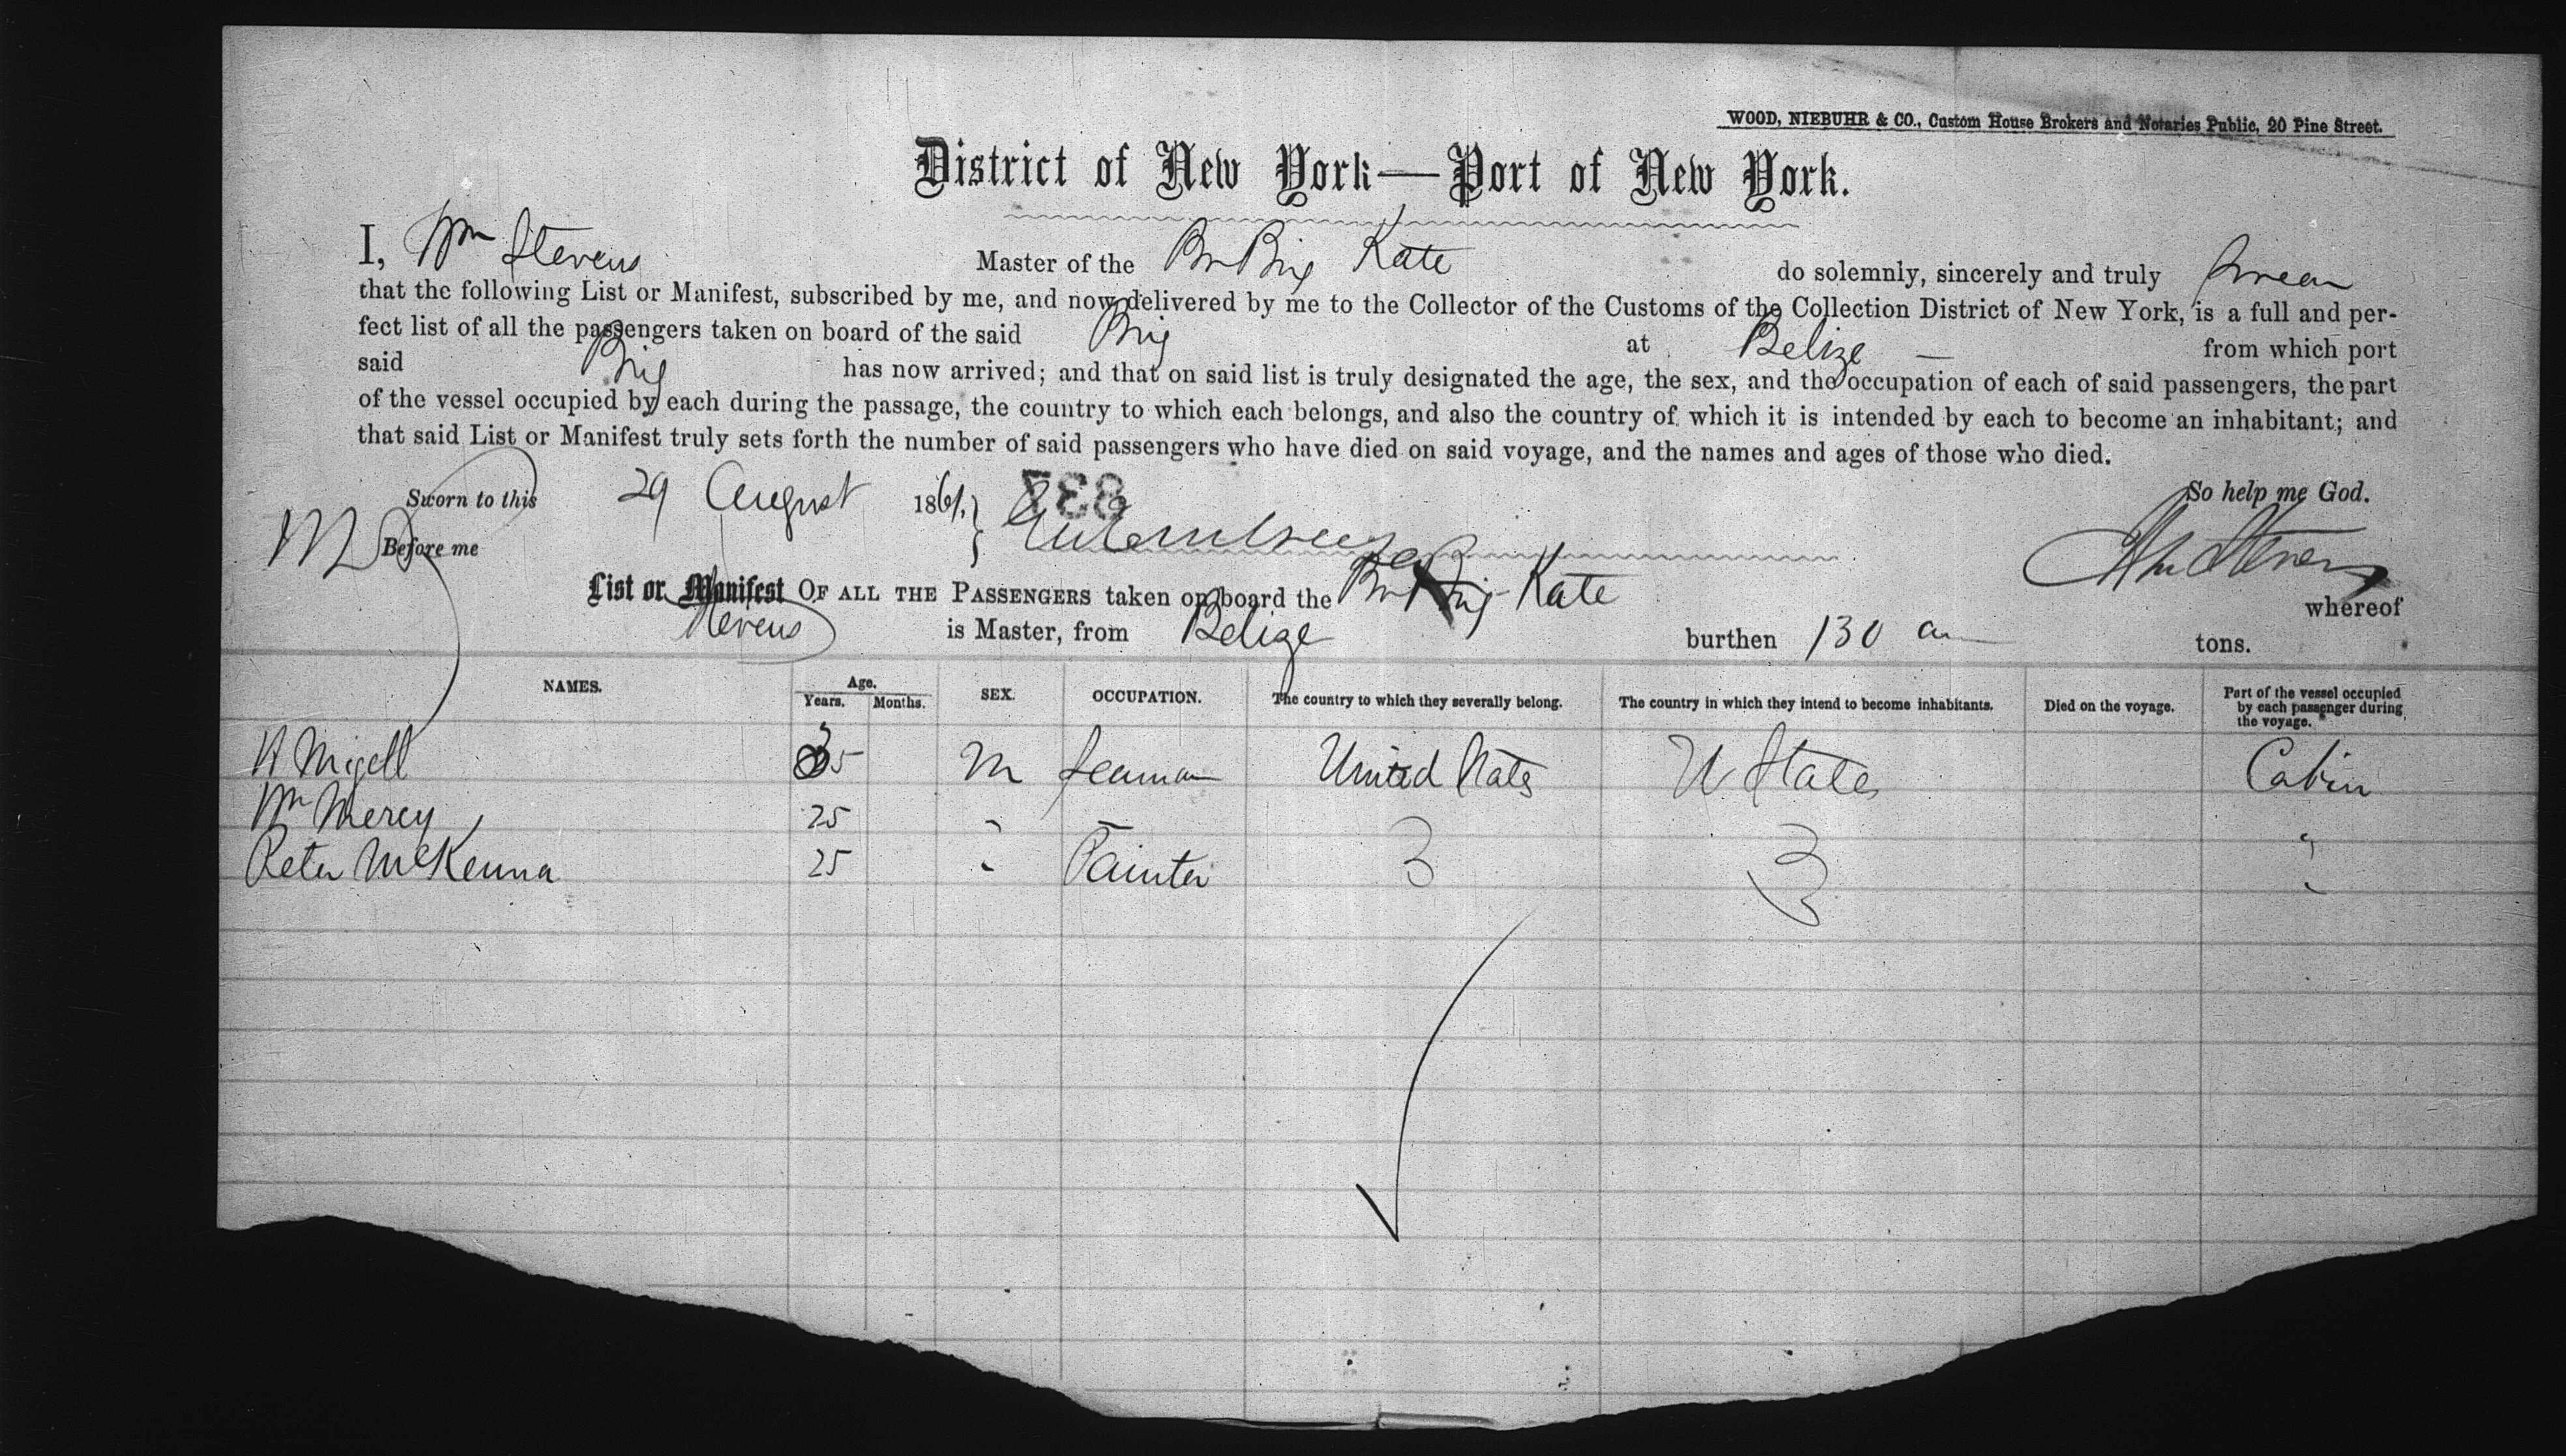 WOOD, NIEBUHR & CO., Custom House Brokers and Notaries Public, 20 Pine Street.
District of New York—Port of New York.
I, Wm Stevens Master of the Br Brig Kate do solemnly, sincerely and truly swear
that the following List or Manifest, subscribed by me, and now delivered by me to the Collector of the Customs of the Collection District of New York, is a full and per-
fect list of all the passengers taken on board of the said Brig at Belize — from which port
said Brig has now arrived; and that on said list is truly designated the age, the sex, and the occupation of each of said passengers, the part
of the vessel occupied by each during the passage, the country to which each belongs, and also the country of which it is intended by each to become an inhabitant; and
that said List or Manifest truly sets forth the number of said passengers who have died on said voyage, and the names and ages of those who died.
So help me God.
Sworn to this 29 August 1861. 833
Before me
Wm Stevens
List or Manifest OF ALL THE PASSENGERS taken on board the Br Brig Kate whereof
Stevens is Master, from Belize burthen 130 tons.
NAMES. Age. Years. Months. SEX. OCCUPATION. The country to which they severally belong. The country in which they intend to become inhabitants. Died on the voyage. Part of the vessel occupied by each passenger during the voyage.
35 M Seaman United States U States Cabin
Wm Mercy 25 " "
Peter McKenna 25 " Painter "